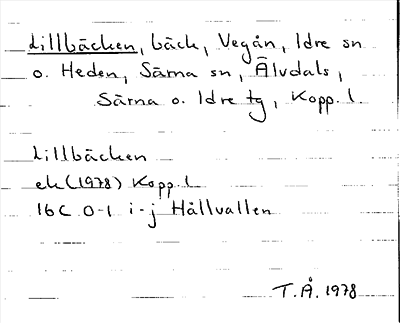 Lillbäcken, bäck, Vegån, Idre sn
o. Heden, Särna sn, Älvdals,
Särna o. Idre tg, Kopp. l.
Lillbäcken
ek (1978) Kopp. l.
16C 0-1 i-j Hållvallen
T.Å. 1978